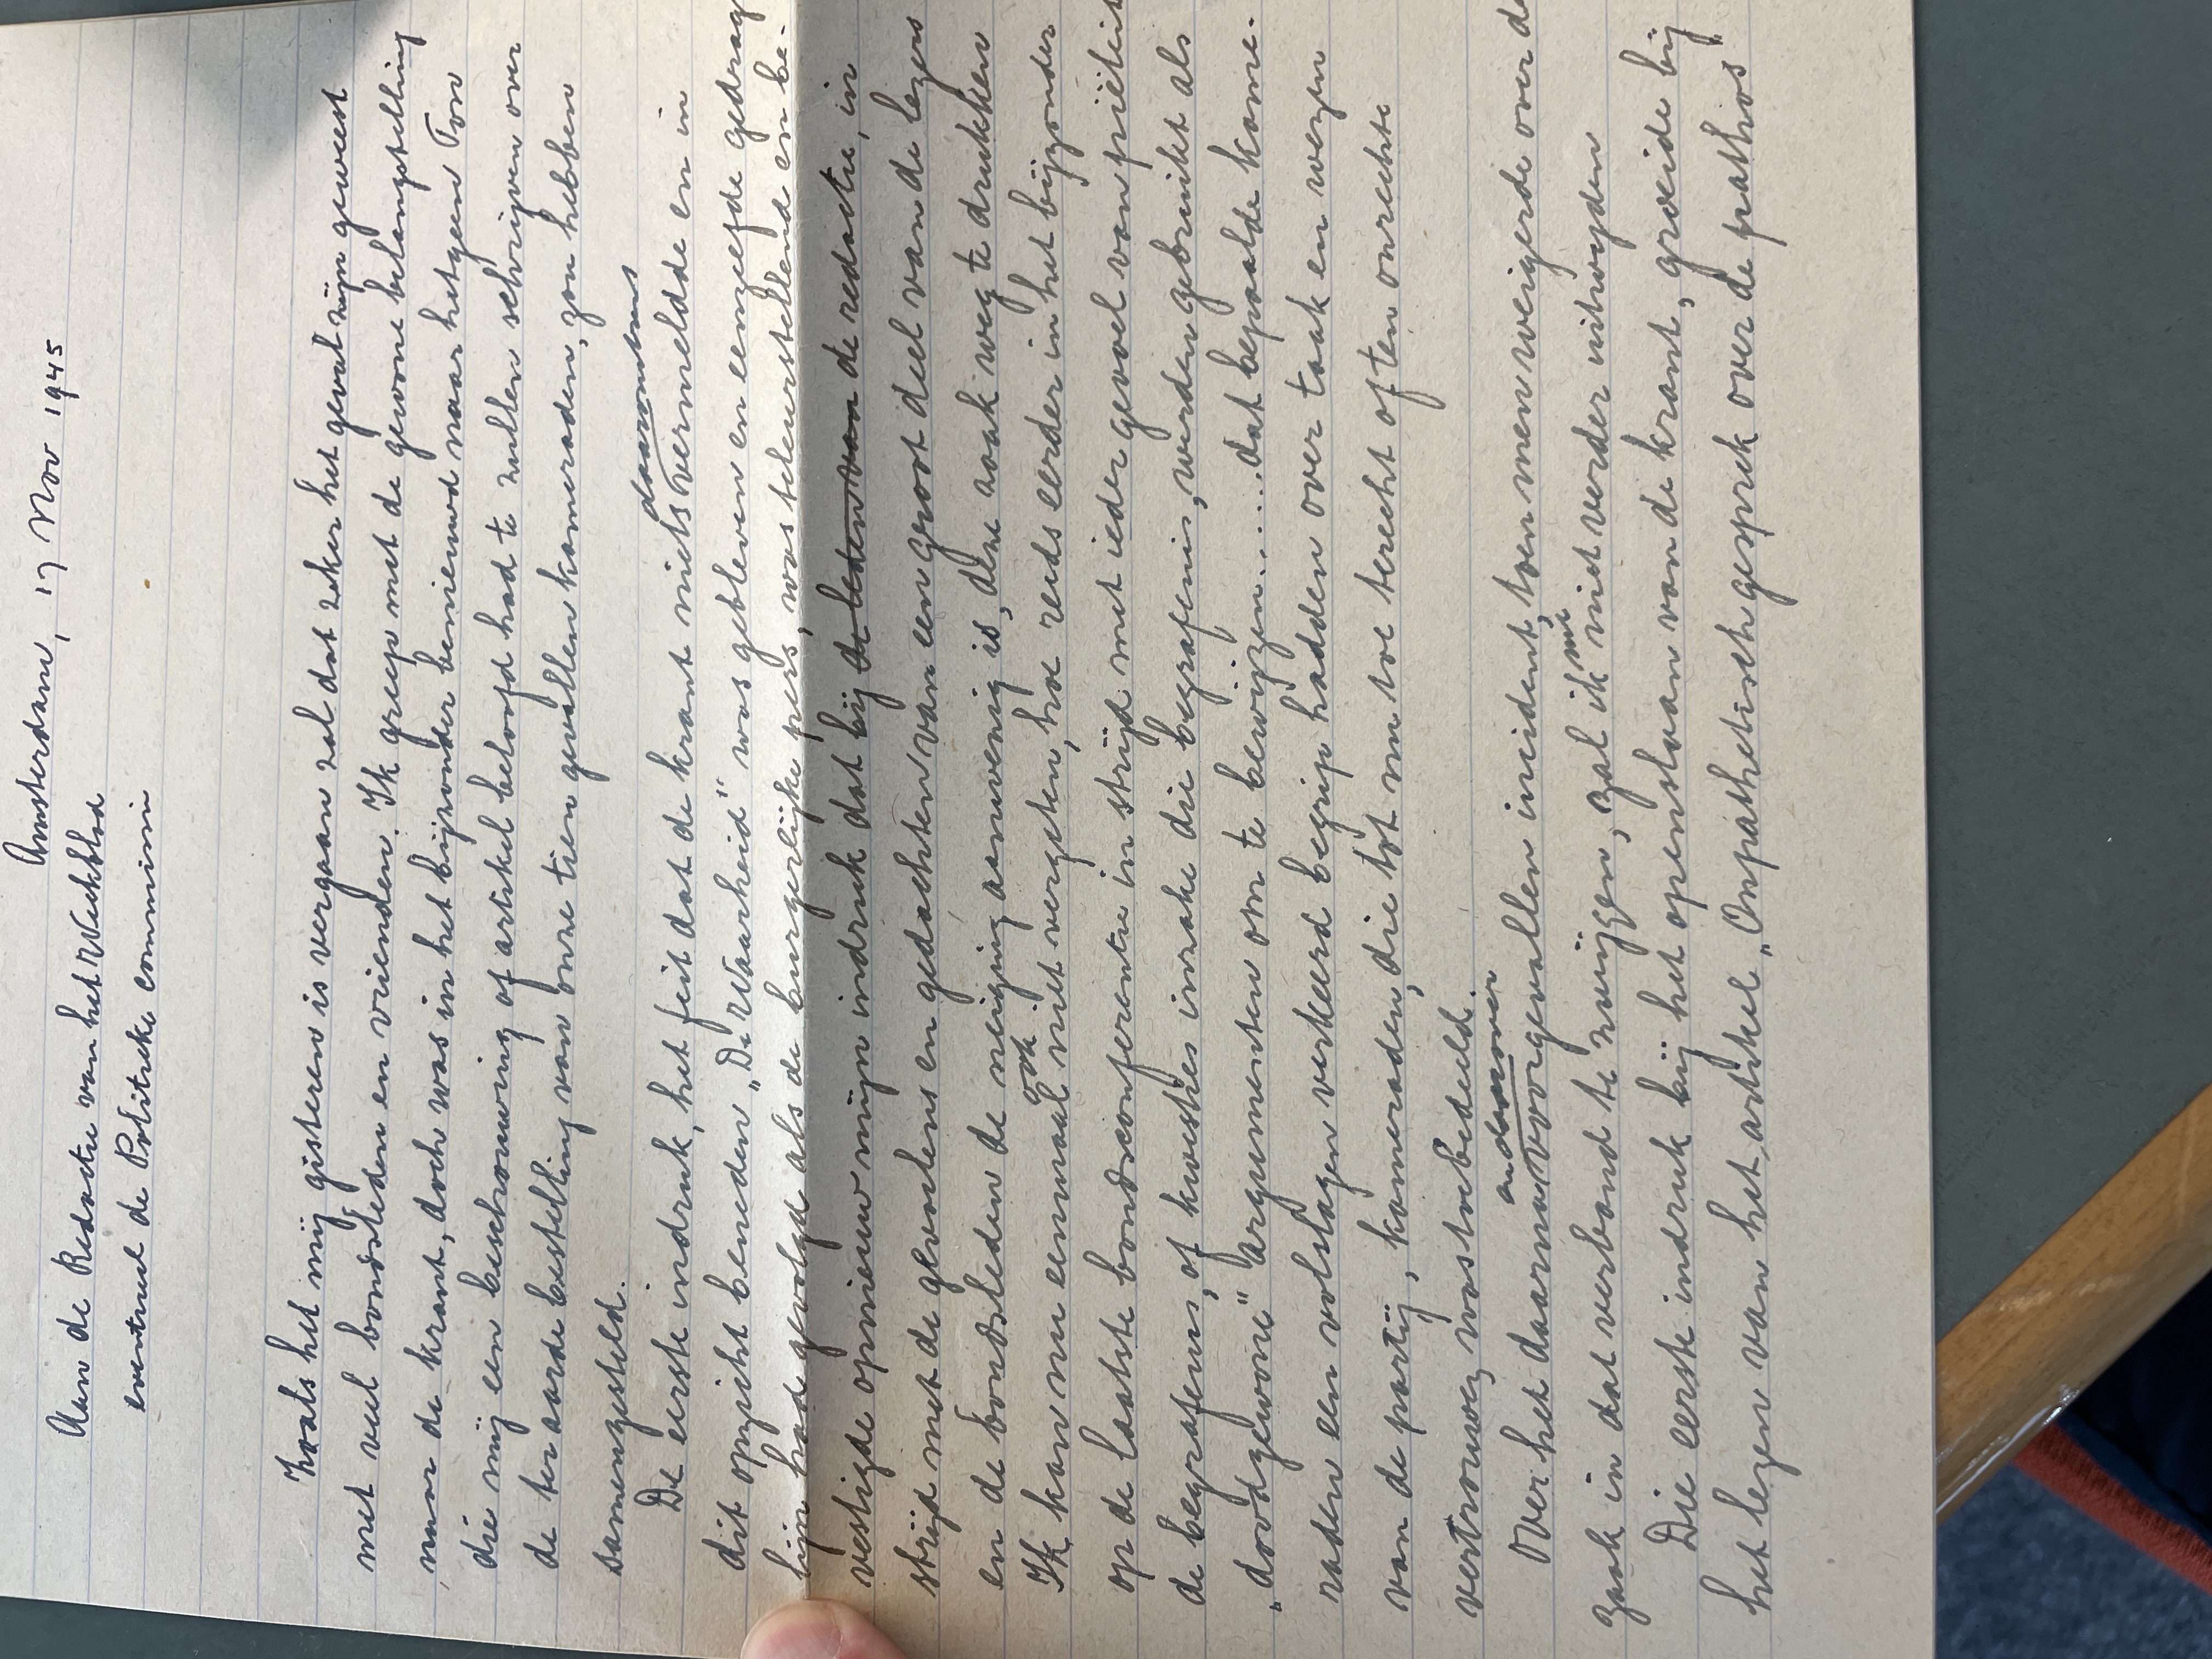 Amsterdam, 17 Nov 1945
Aan de Redactie van het Weekblad
eventueel de Politieke commissie
Zoals het mij gisteren is vergaan zal dat zeker het geval zijn geweest
met veel bondsleden en vrienden. Ik greep met de gewone belangstelling
naar de krant, doch was in het bijzonder benieuwd naar hetgeen Ton
die mij een beschouwing of artikel beloofd had te zullen schrijven over
de ter aarde bestelling van onze tien gevallen kameraden, zou hebben
samengesteld.
daaromtrent
De eerste indruk, het feit dat de krant niets vermeldde en in
dit opzicht beneden „De Waarheid" was gebleven en eenzelfde gedrags
lijn had gevolgd als de burgerlijke pers, was teleurstellend en be-
vestigde opnieuw mijn indruk dat bij de leden van de redactie, in
strijd met de gevoelens en gedachten van een groot deel van de lezers
en de bondsleden de neiging aanwezig is, deze zaak weg te drukken
ook
Ik kan nu eenmaal niet vergeten, hoe reeds eerder in het bijzonder
op de laatste bondsconferentie in strijd met ieder gevoel van piëteit
de begrafenis, of kwesties inzake die begrafenis, werden gebruikt als
„doodgewone" argumenten om te bewijzen..... dat bepaalde kame-
raden een volslagen verkeerd begrip hadden over taak en wezen
van de partij, kameraden, die tot nu toe terecht of ten onrechte
vertrouwen, was toebedeeld.
Over het daarna voorgevallen incident, toen men weigerde over de
me
zaak in dat verband te zwijgen, zal ik niet verder uitweiden
Die eerste indruk bij het openslaan van de krant, groeide bij
het lezen van het artikel „Onpathetisch gesprek over de pathos